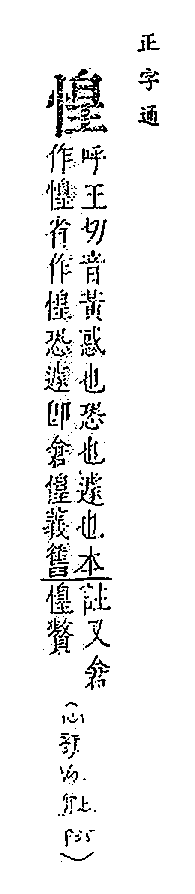 正字通
惶
呼王切音黃惑也恐也遽也本註又倉
作惶省作惶恐遽卽倉偟義舊惶贅
(心部 上. P35)